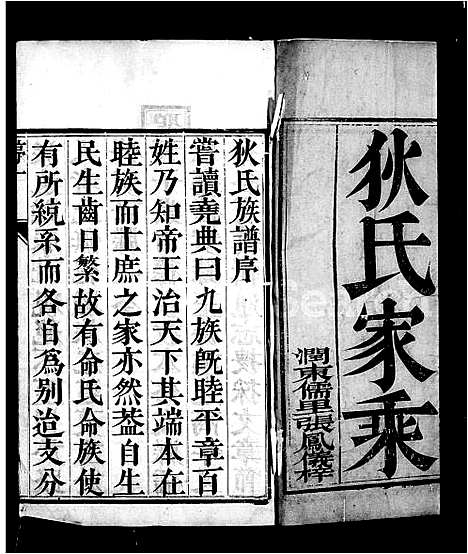 狄氏家乘
潤東儒里張鳳儀梓
狄氏族譜序
嘗讀堯典曰九族既睦平章百
姓乃知帝王治天下其端本在
睦族而士庶之家亦然蓋自生
民生齒日繁故有命氏命族使
有所統系而各自為別迨支分